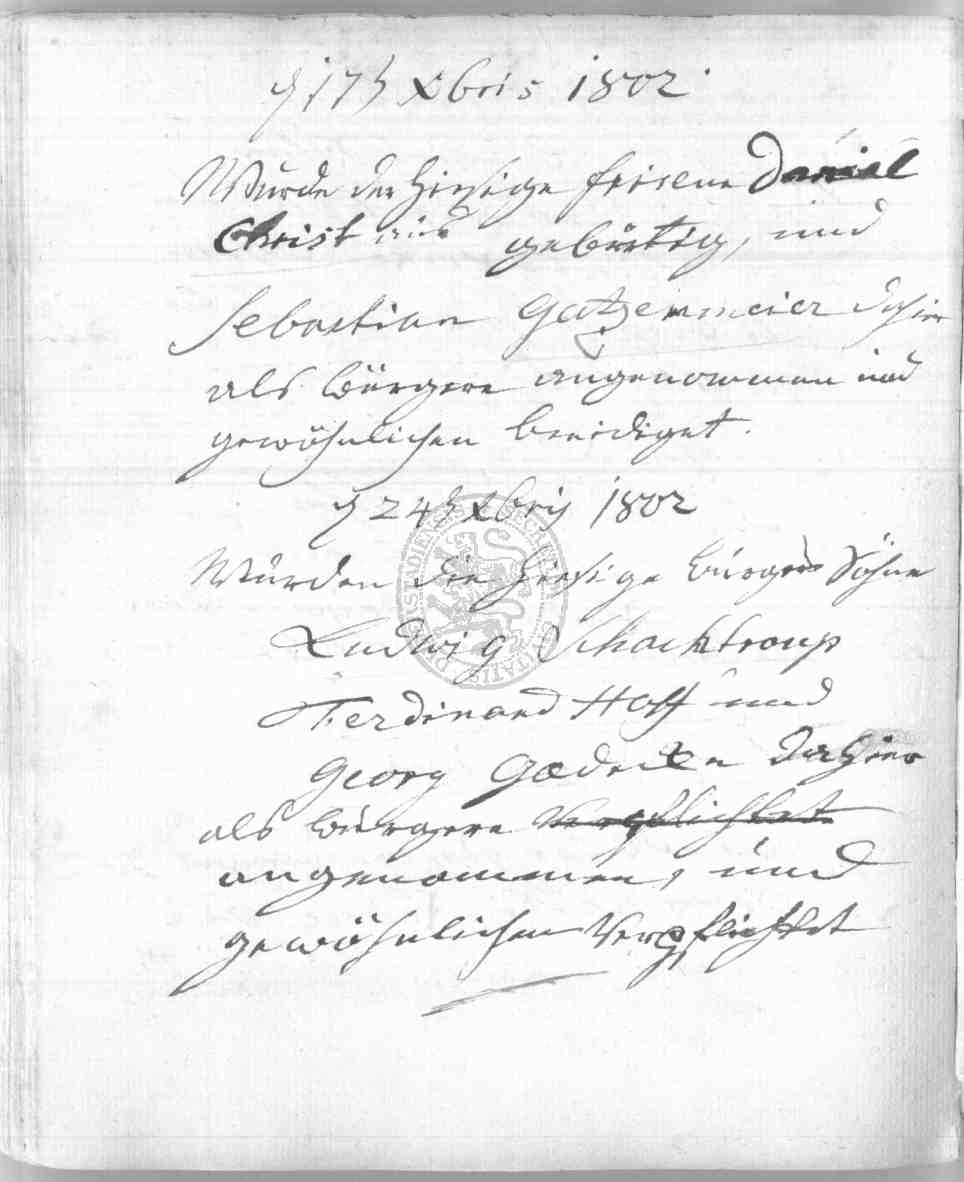 d 17t Xbris 1802
Wurde der hiesige friseur Daniel
Christ aus gebürtig, und
Sebastian Gatzemeier dahier
als bürgere angenommen und
gewöhnlichen beeidiget.
d 24t Xbris 1802
Wurden die hiesige bürgers Söhne
Ludwig Schachtrupp
Ferdinand Hoff und
Georg Gædecken dahier
als bürgere verpflichtet
angenommen, und
gewöhnlichen verpflichtet